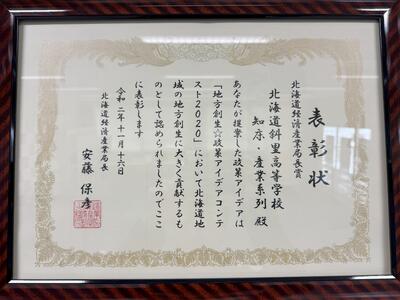 表彰状
北海道経済産業局長賞
北海道斜里高等学校
知床・産業系列 殿
あなたが提案した政策アイデアは
「地方創生☆政策アイデアコンテ
スト2020」において北海道地
域の地方創生に大きく貢献するも
のとして認められましたのでここ
に表彰します
令和二年十一月十六日
北海道経済産業局長
安藤 保彦